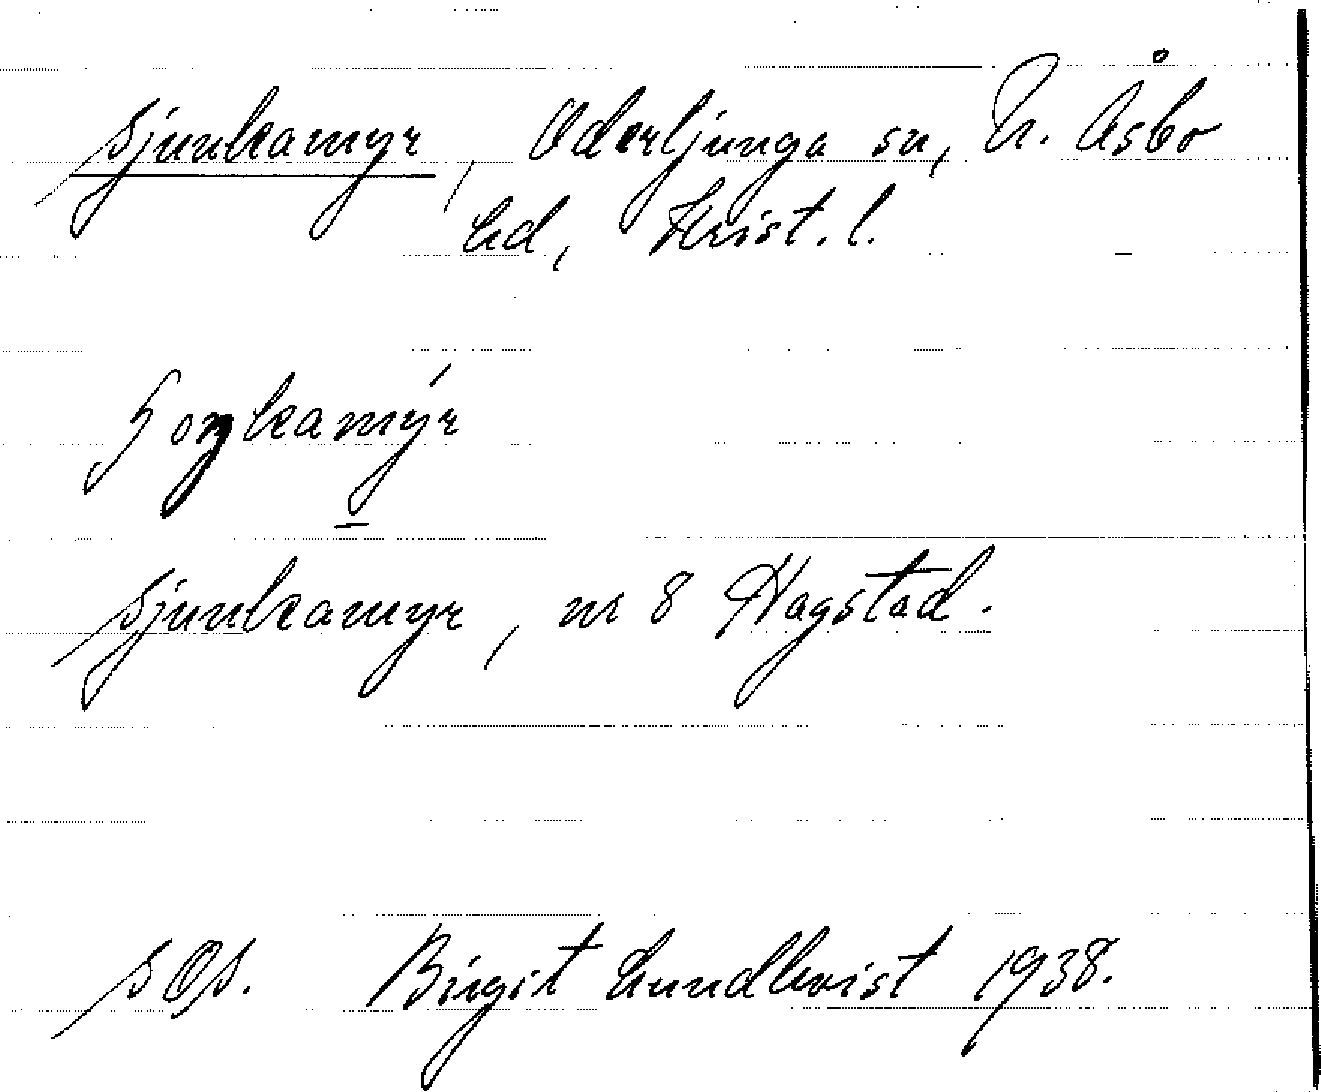 Sjunkamyr, Oderljunga sn, N. Åsbo
hd, Krist. l.
Sjunkamyr, nr 8 Hagstad.
Birgit Lundkvist 1938.